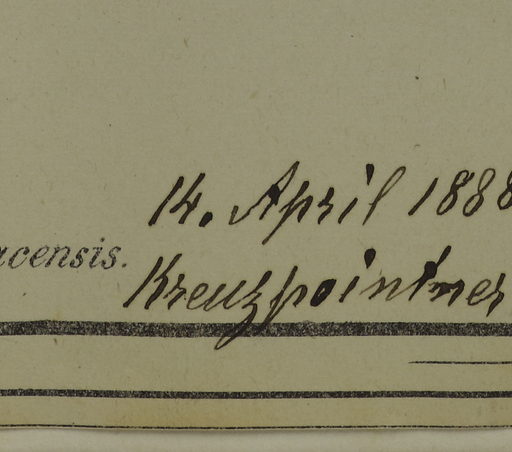 14. April 1888
acensis.
Kreuzpointner